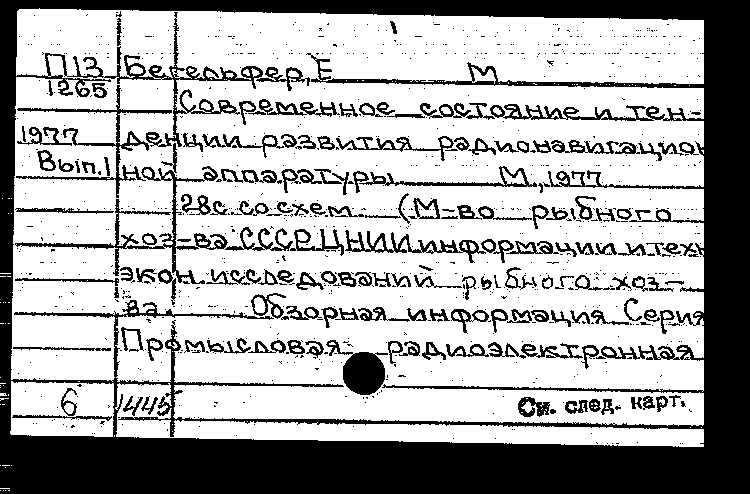 П13 Бегельфер, Е М.
1265
Современное состояние и тен-
1977 денции развития радионавигацион
Вып.1 ной аппаратуры М., 1977
28с. со схем. (М-во рыбного
хоз-ва СССР. ЦНИИ информации и техн
экон. исследований рыбного хоз-
ва. Обзорная информация Серия
Промысловая радиоэлектронная
6 1445 См. след. карт.